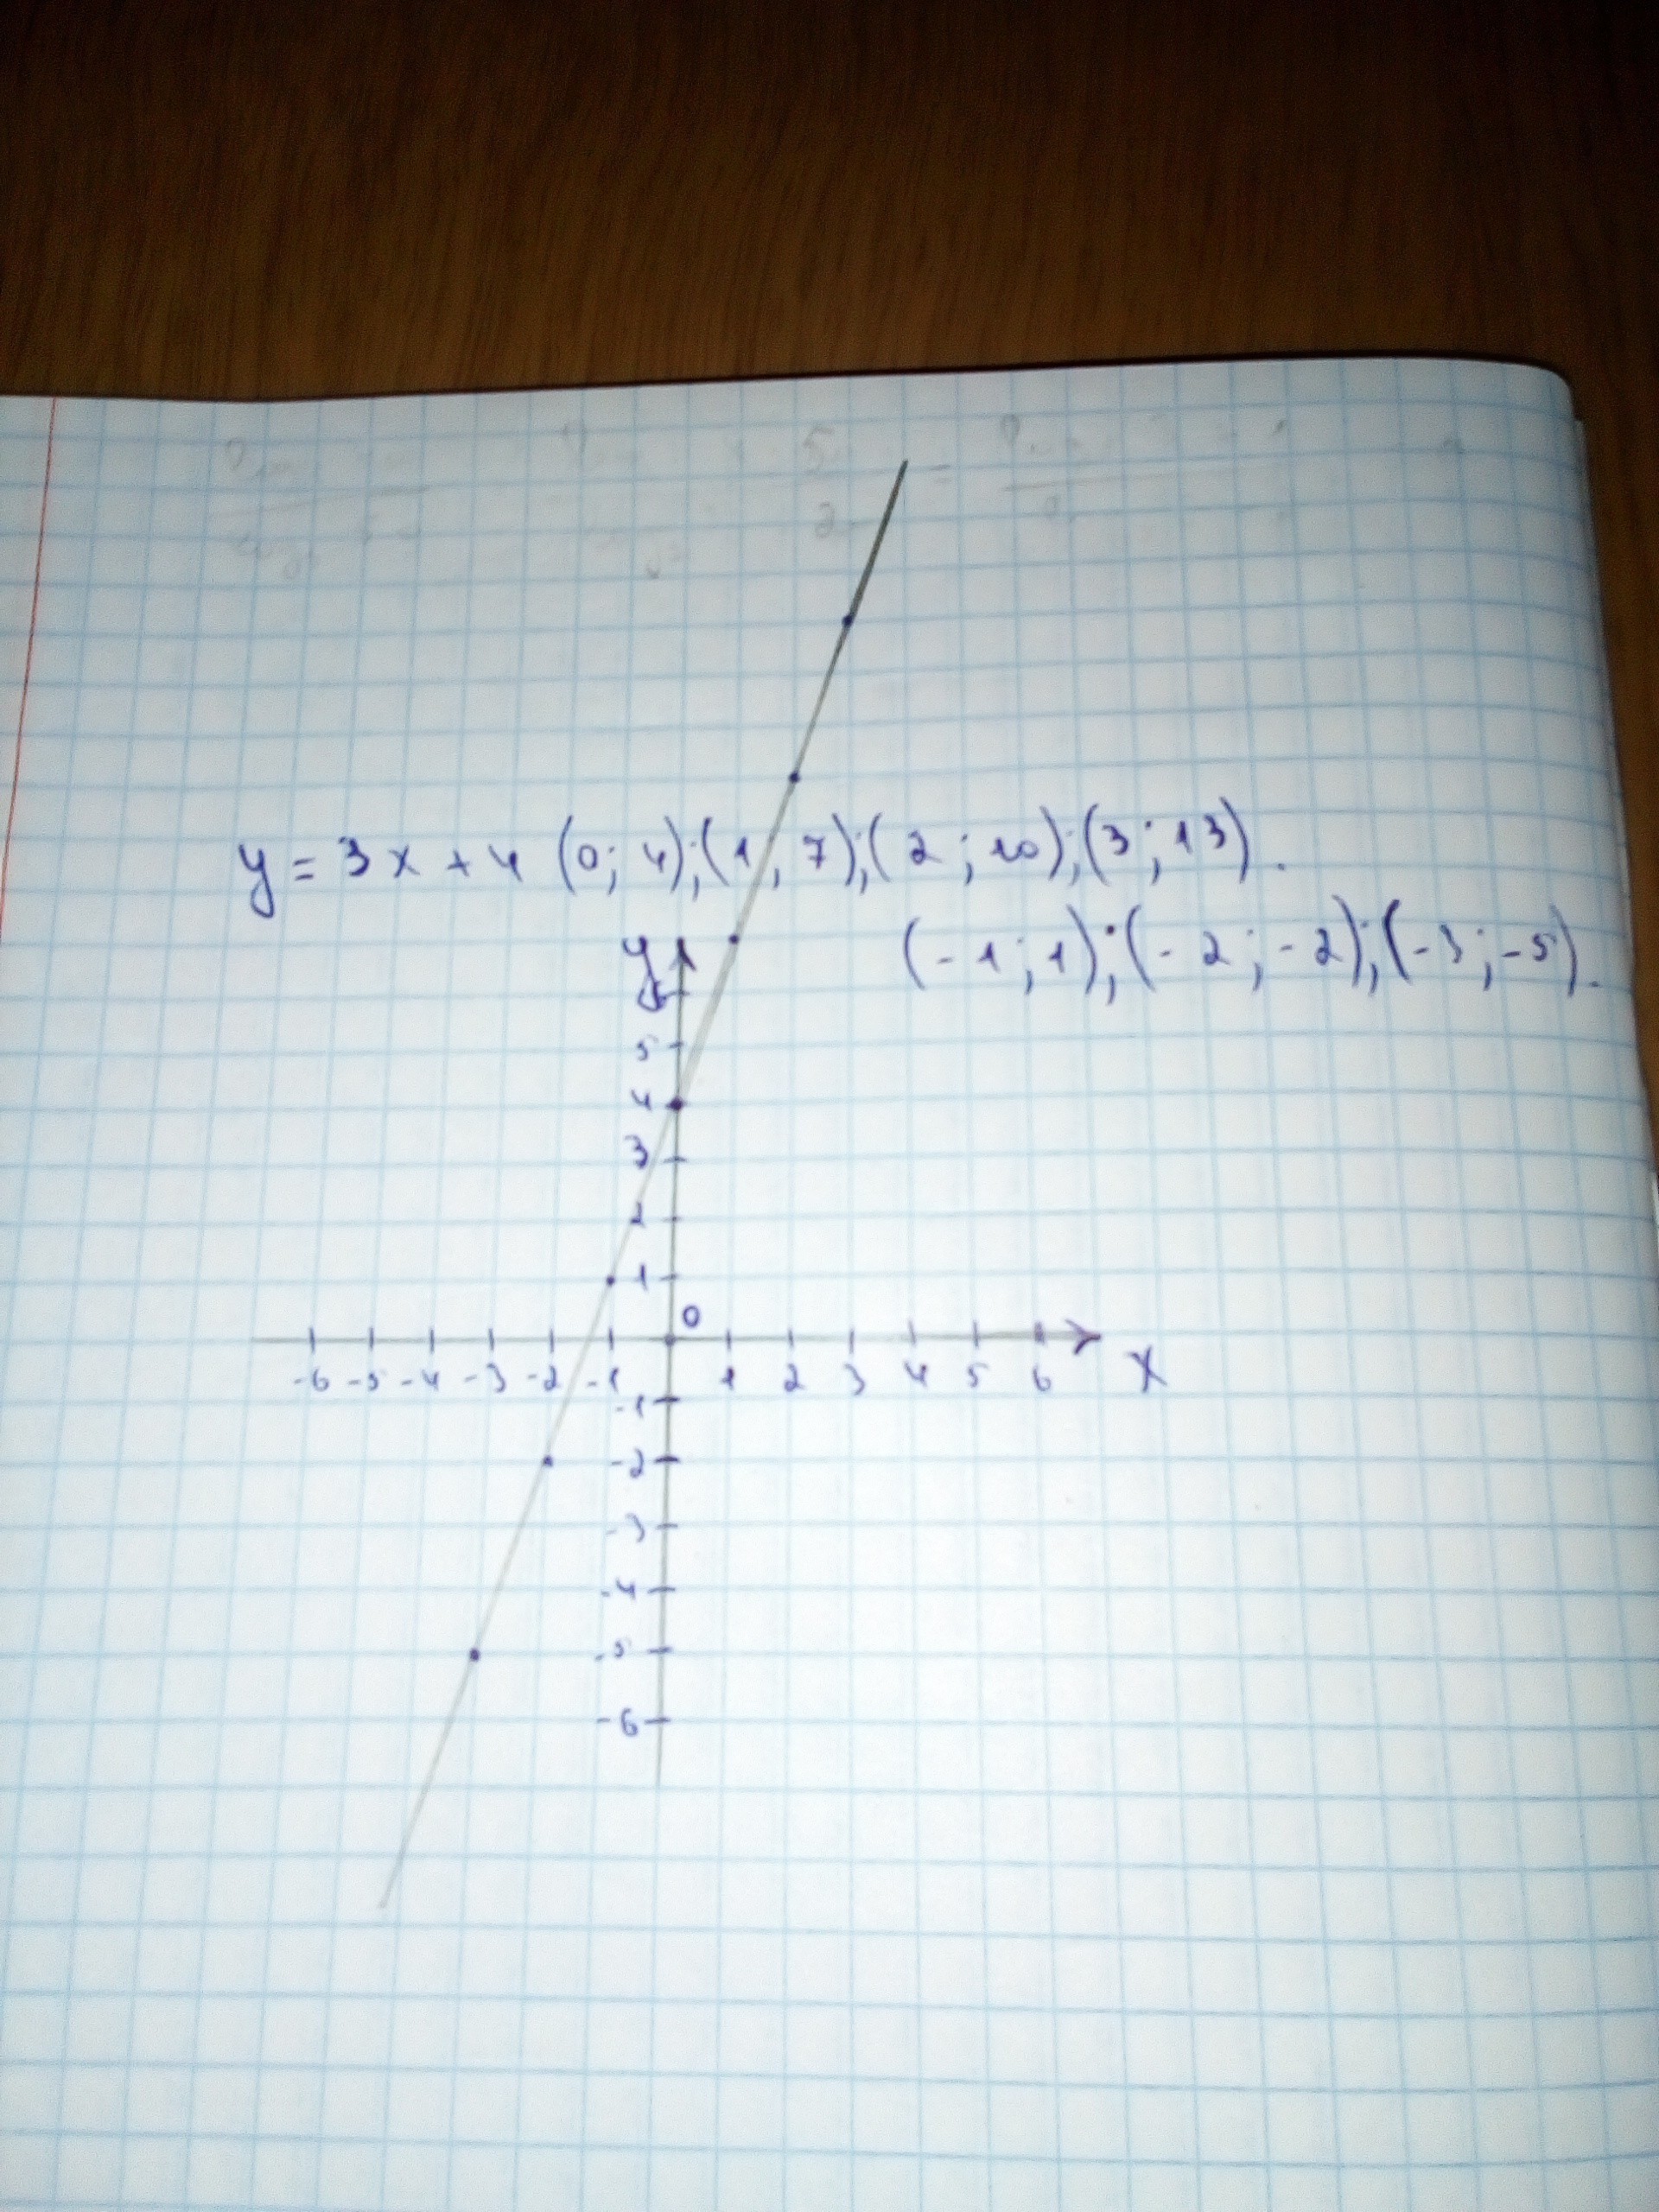 y = 3x + 4 (0; 4);(1; 7);(2; 10);(3; 13).
(-1; 1);(-2; -2);(-3; -5).
y
6
5
4
3
2
1
0
-6 -5 -4 -3 -2 -1 1 2 3 4 5 6 x
-1
-2
-3
-4
-5
-6